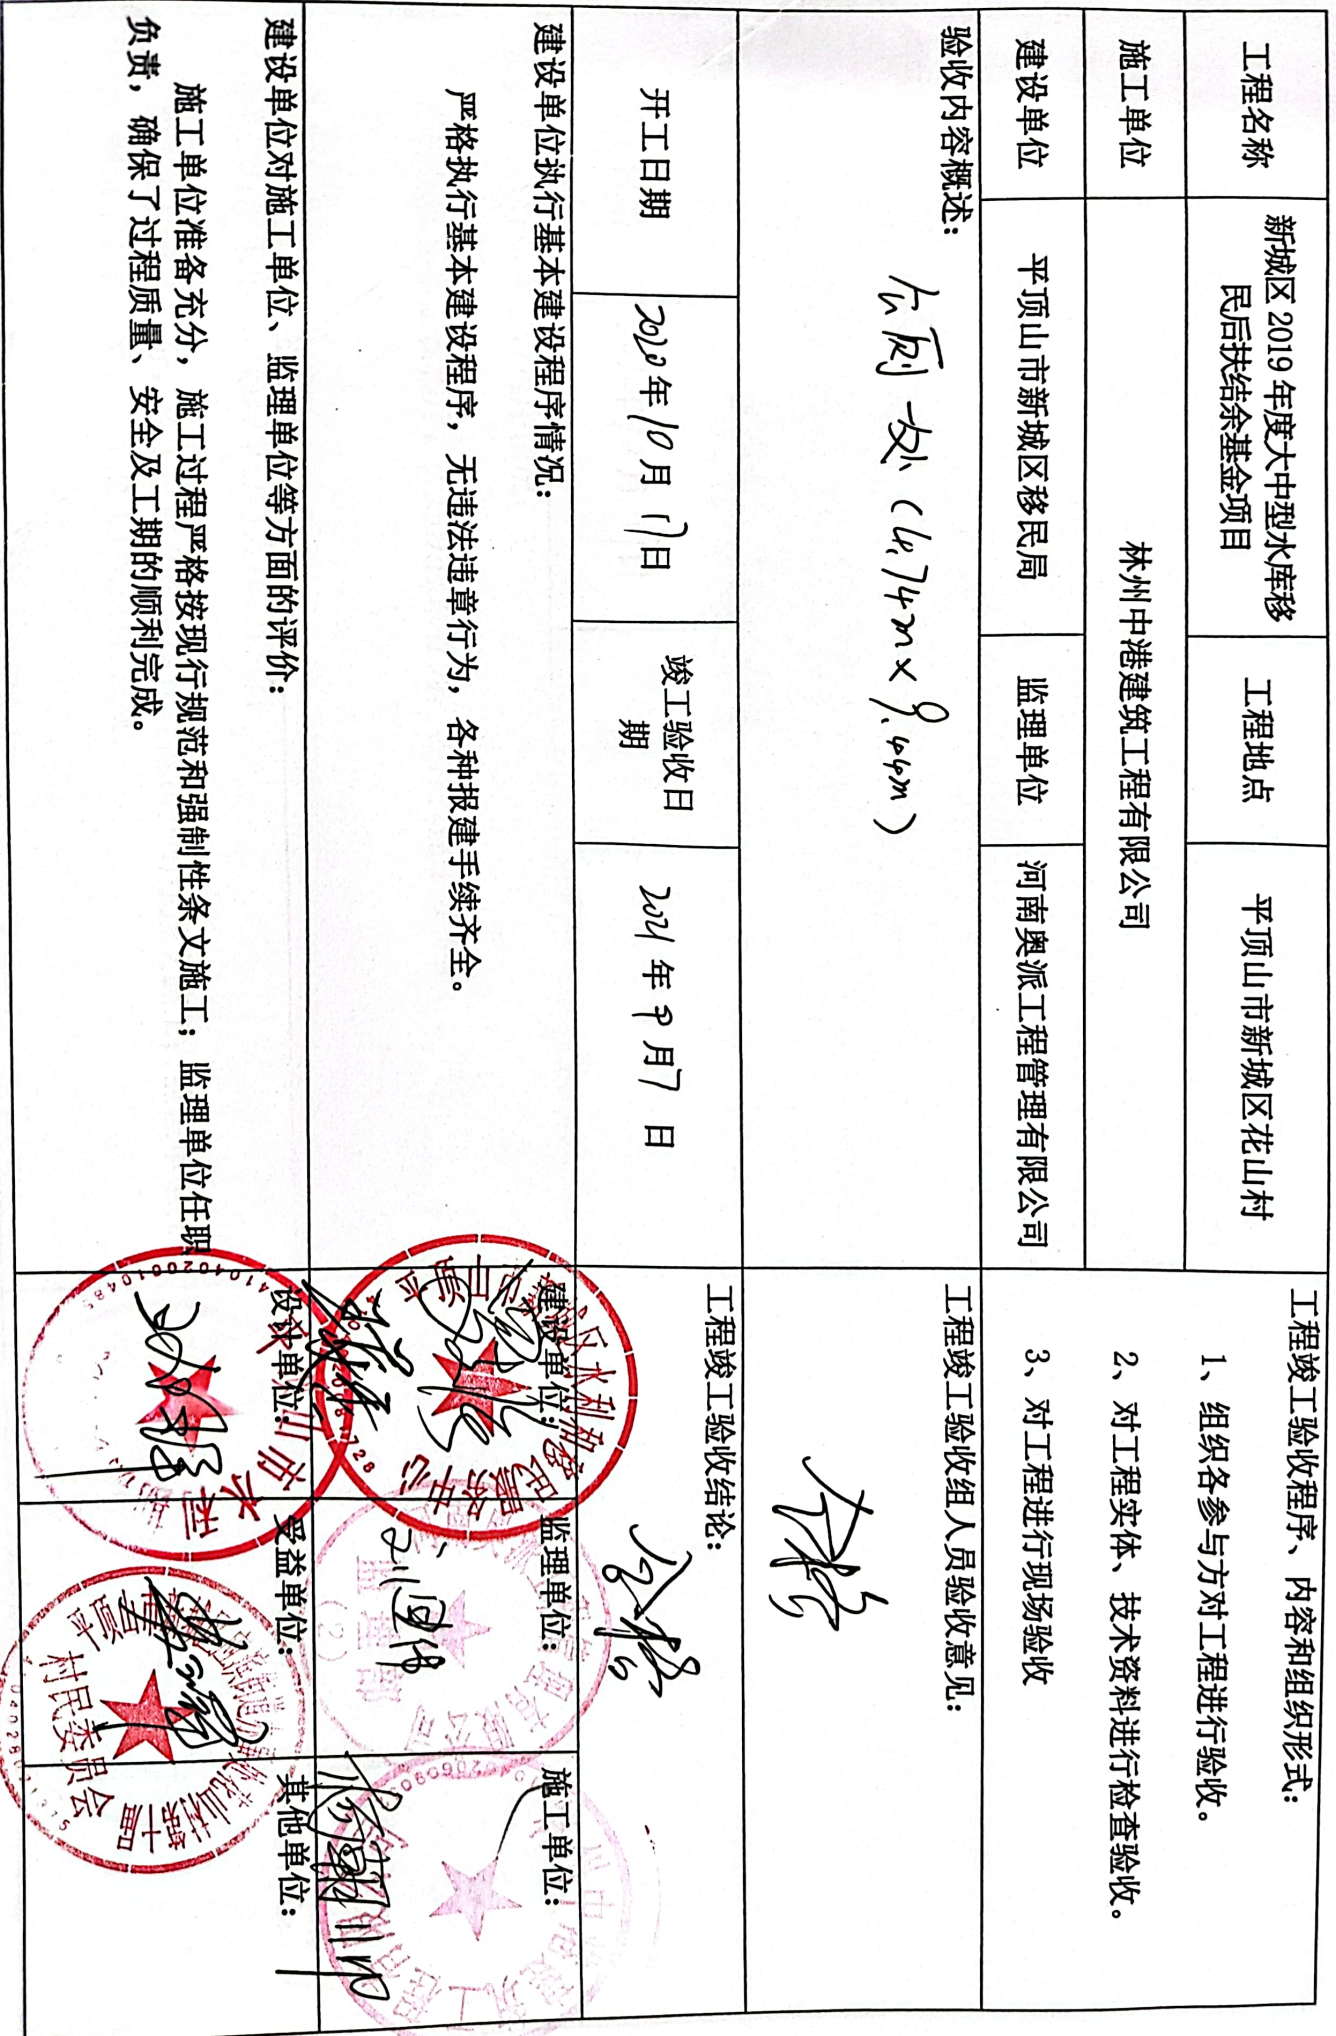 工程名称
新城区 2019 年度大中型水库移
民后扶结余基金项目
工程地点
平顶山市新城区花山村
施工单位
林州中港建筑工程有限公司
建设单位
平顶山市新城区移民局
监理单位
河南奥派工程管理有限公司
验收内容概述：
公厕一处（4.74m×9.44m）
开工日期
2020年10月17日
竣工验收日
期
2021年9月7日
建设单位执行基本建设程序情况：
严格执行基本建设程序，无违法违章行为，各种报建手续齐全。
建设单位对施工单位、监理单位等方面的评价：
施工单位准备充分，施工过程严格按现行规范和强制性条文施工；监理单位任职
负责，确保了过程质量、安全及工期的顺利完成。
工程竣工验收程序、内容和组织形式：
1、组织各参与方对工程进行验收。
2、对工程实体、技术资料进行检查验收。
3、对工程进行现场验收
工程竣工验收组人员验收意见：
合格
工程竣工验收结论：
合格
建设单位：
监理单位：
施工单位：
设计单位：
受益单位：
其他单位：
村民委员会
4104020010485